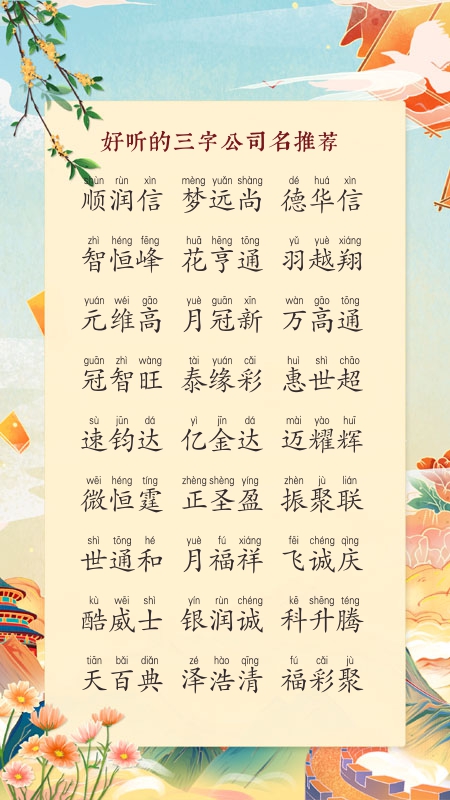 好听的三字公司名推荐
shùn rùn xìn mèng yuǎn shàng dé huá xìn
顺润信 梦远尚 德华信
zhì héng fēng huā hēng tōng yǔ yuè xiáng
智恒峰 花亨通 羽越翔
yuán wéi gāo yuè guān xīn wàn gāo tōng
元维高 月冠新 万高通
guān zhì wàng tài yuán cǎi huì shì chāo
冠智旺 泰缘彩 惠世超
sù jūn dá yì jīn dá mài yào huī
速钧达 亿金达 迈耀辉
wēi héng tíng zhèng shèng yíng zhèn jù lián
微恒霆 正圣盈 振聚联
shì tōng hé yuè fú xiáng fēi chéng qìng
世通和 月福祥 飞诚庆
kù wēi shì yín rùn chéng kē shēng téng
酷威士 银润诚 科升腾
tiān bǎi diǎn zé hào qīng fú cǎi jù
天百典 泽浩清 福彩聚